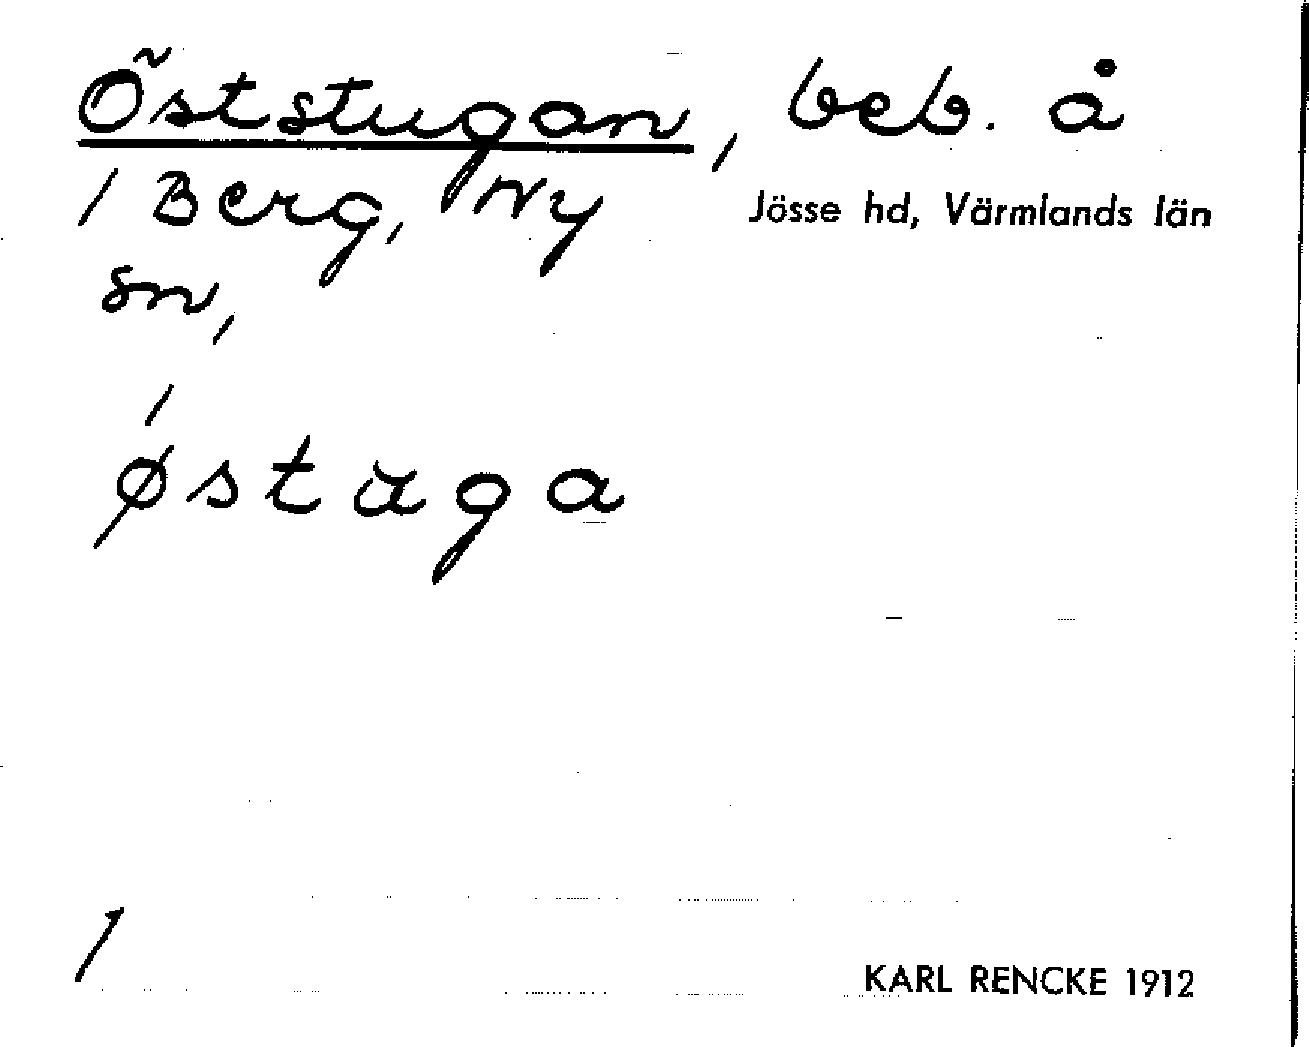 Öststugan, beb. å
/ Berg, Ny
Jösse hd, Värmlands län
sn,
/
østuga
1
KARL RENCKE 1912